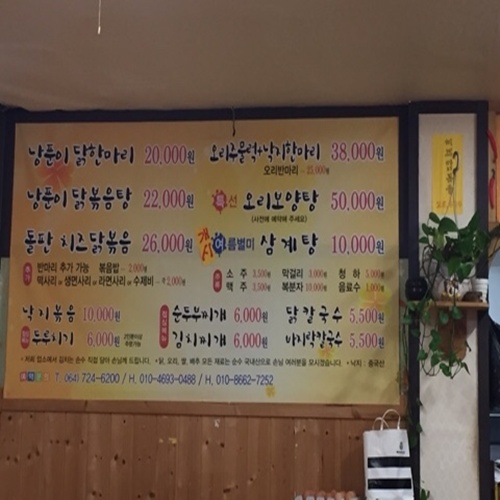 낭푼이 닭한마리 20,000원
오리주물럭+낙지한마리 38,000원
오리반마리 - 25,000원
낭푼이 닭볶음탕 22,000원
특선 오리보양탕 50,000원
(사전에 예약해 주세요)
돌판 치즈닭볶음 26,000원
개시 여름별미 삼계탕 10,000원
반마리 추가 가능 볶음밥 - 2,000원
떡사리 or 생면사리 or 라면사리 or 수제비 - 2,000원
소주 3,500원 막걸리 3,000원 청하 5,000원
맥주 3,500원 복분자 10,000원 음료수 1,000원
낙지볶음 10,000원
순두부찌개 6,000원
닭칼국수 5,500원
두루치기 6,000원
김치찌개 6,000원
바지락칼국수 5,500원
• 저희 업소에서 김치는 손수 직접 담아 손님께 드립니다. • 닭, 오리, 쌀, 배추 모든 재료는 순수 국내산으로 손님 여러분을 모시겠습니다. • 낙지 : 중국산
예약문의 T. 064) 724-6200 / H. 010-4693-0488 / H. 010-8662-7252